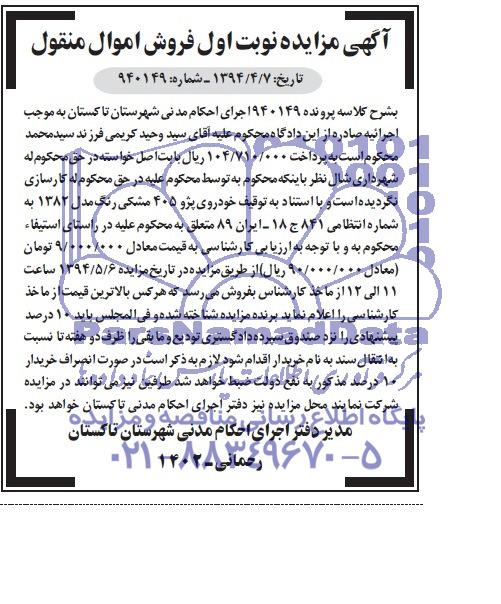 آگهی مزایده نوبت اول فروش اموال منقول
تاریخ: ۱۳۹۴/۴/۷ ـ شماره: ۹۴۰۱۴۹
بشرح کلاسه پرونده ۹۴۰۱۴۹ اجرای احکام مدنی شهرستان تاکستان به موجب
اجرائیه صادره از این دادگاه محکوم علیه آقای سید وحید کریمی فرزند سیدمحمد
محکوم است به پرداخت ۱۰۴/۷۱۰/۰۰۰ ریال بابت اصل خواسته در حق محکوم له
شهرداری شال نظر باینکه محکوم به توسط محکوم علیه در حق محکوم له کارسازی
نگردیده است و با استناد به توقیف خودروی پژو ۴۰۵ مشکی رنگ مدل ۱۳۸۲ به
شماره انتظامی ۸۴۱ ج ۱۸ ـ ایران ۸۹ متعلق به محکوم علیه در راستای استیفاء
محکوم به و با توجه به ارزیابی کارشناسی به قیمت معادل ۹/۰۰۰/۰۰۰ تومان
(معادل ۹۰/۰۰۰/۰۰۰ ریال) از طریق مزایده در تاریخ مزایده ۱۳۹۴/۵/۶ ساعت
۱۱ الی ۱۲ از ماخذ کارشناس بفروش می رسد که هر کس بالاترین قیمت از ماخذ
کارشناسی را اعلام نماید برنده مزایده شناخته شده و فی المجلس باید ۱۰ درصد
پیشنهادی را نزد صندوق سپرده دادگستری تودیع و مابقی را ظرف دو هفته تا نسبت
به انتقال سند به نام خریدار اقدام شود لازم به ذکر است در صورت انصراف خریدار
۱۰ درصد مذکور به نفع دولت ضبط خواهد شد طرفین نیز می توانند در مزایده
شرکت نمایند محل مزایده نیز دفتر اجرای احکام مدنی تاکستان خواهد بود.
مدیر دفتر اجرای احکام مدنی شهرستان تاکستان
رحمانی ـ ۱۴۰۲
ParsNamadData
پایگاه اطلاع رسانی مناقصه و مزایده
۰۲۱-۸۸۳۴۹۶۷۰-۵